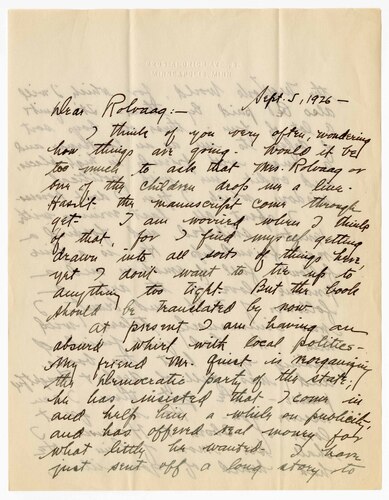 MINNEAPOLIS, MINN.
Sept. 5, 1926 —
Dear Rolvaag: —
I think of you very often, wondering
how things are going. Would it be
too much to ask that Mrs. Rolvaag or
one of the children drop me a line.
Hasn't the manuscript come through
yet. I am worried when I think
of that, for I find myself getting
drawn into all sorts of things here,
yet I don't want to tie up to
anything too tight. But the book
should be translated by now.
At present I am having an
absurd whirl with local politics.
My friend Mr. Quist is reorganizing
the Democratic party of this state;
he has insisted that I come in
and help him a while on publicity,
and has offered real money for
what little he wanted. I have
just sent off a long story to